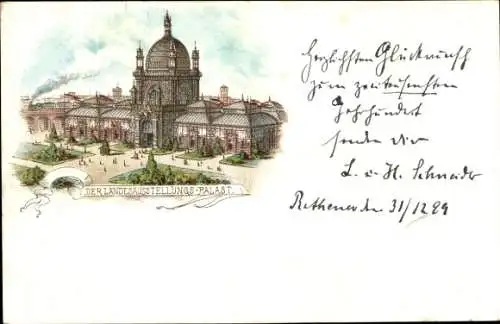 Herzlichsten Glückwunsch
zum zwitausensten
Jahrhundert
senden dir
L. u. H. Schneider
Rathenow den 31/12 99
DER LANDESAUSSTELLUNGS-PALAST.